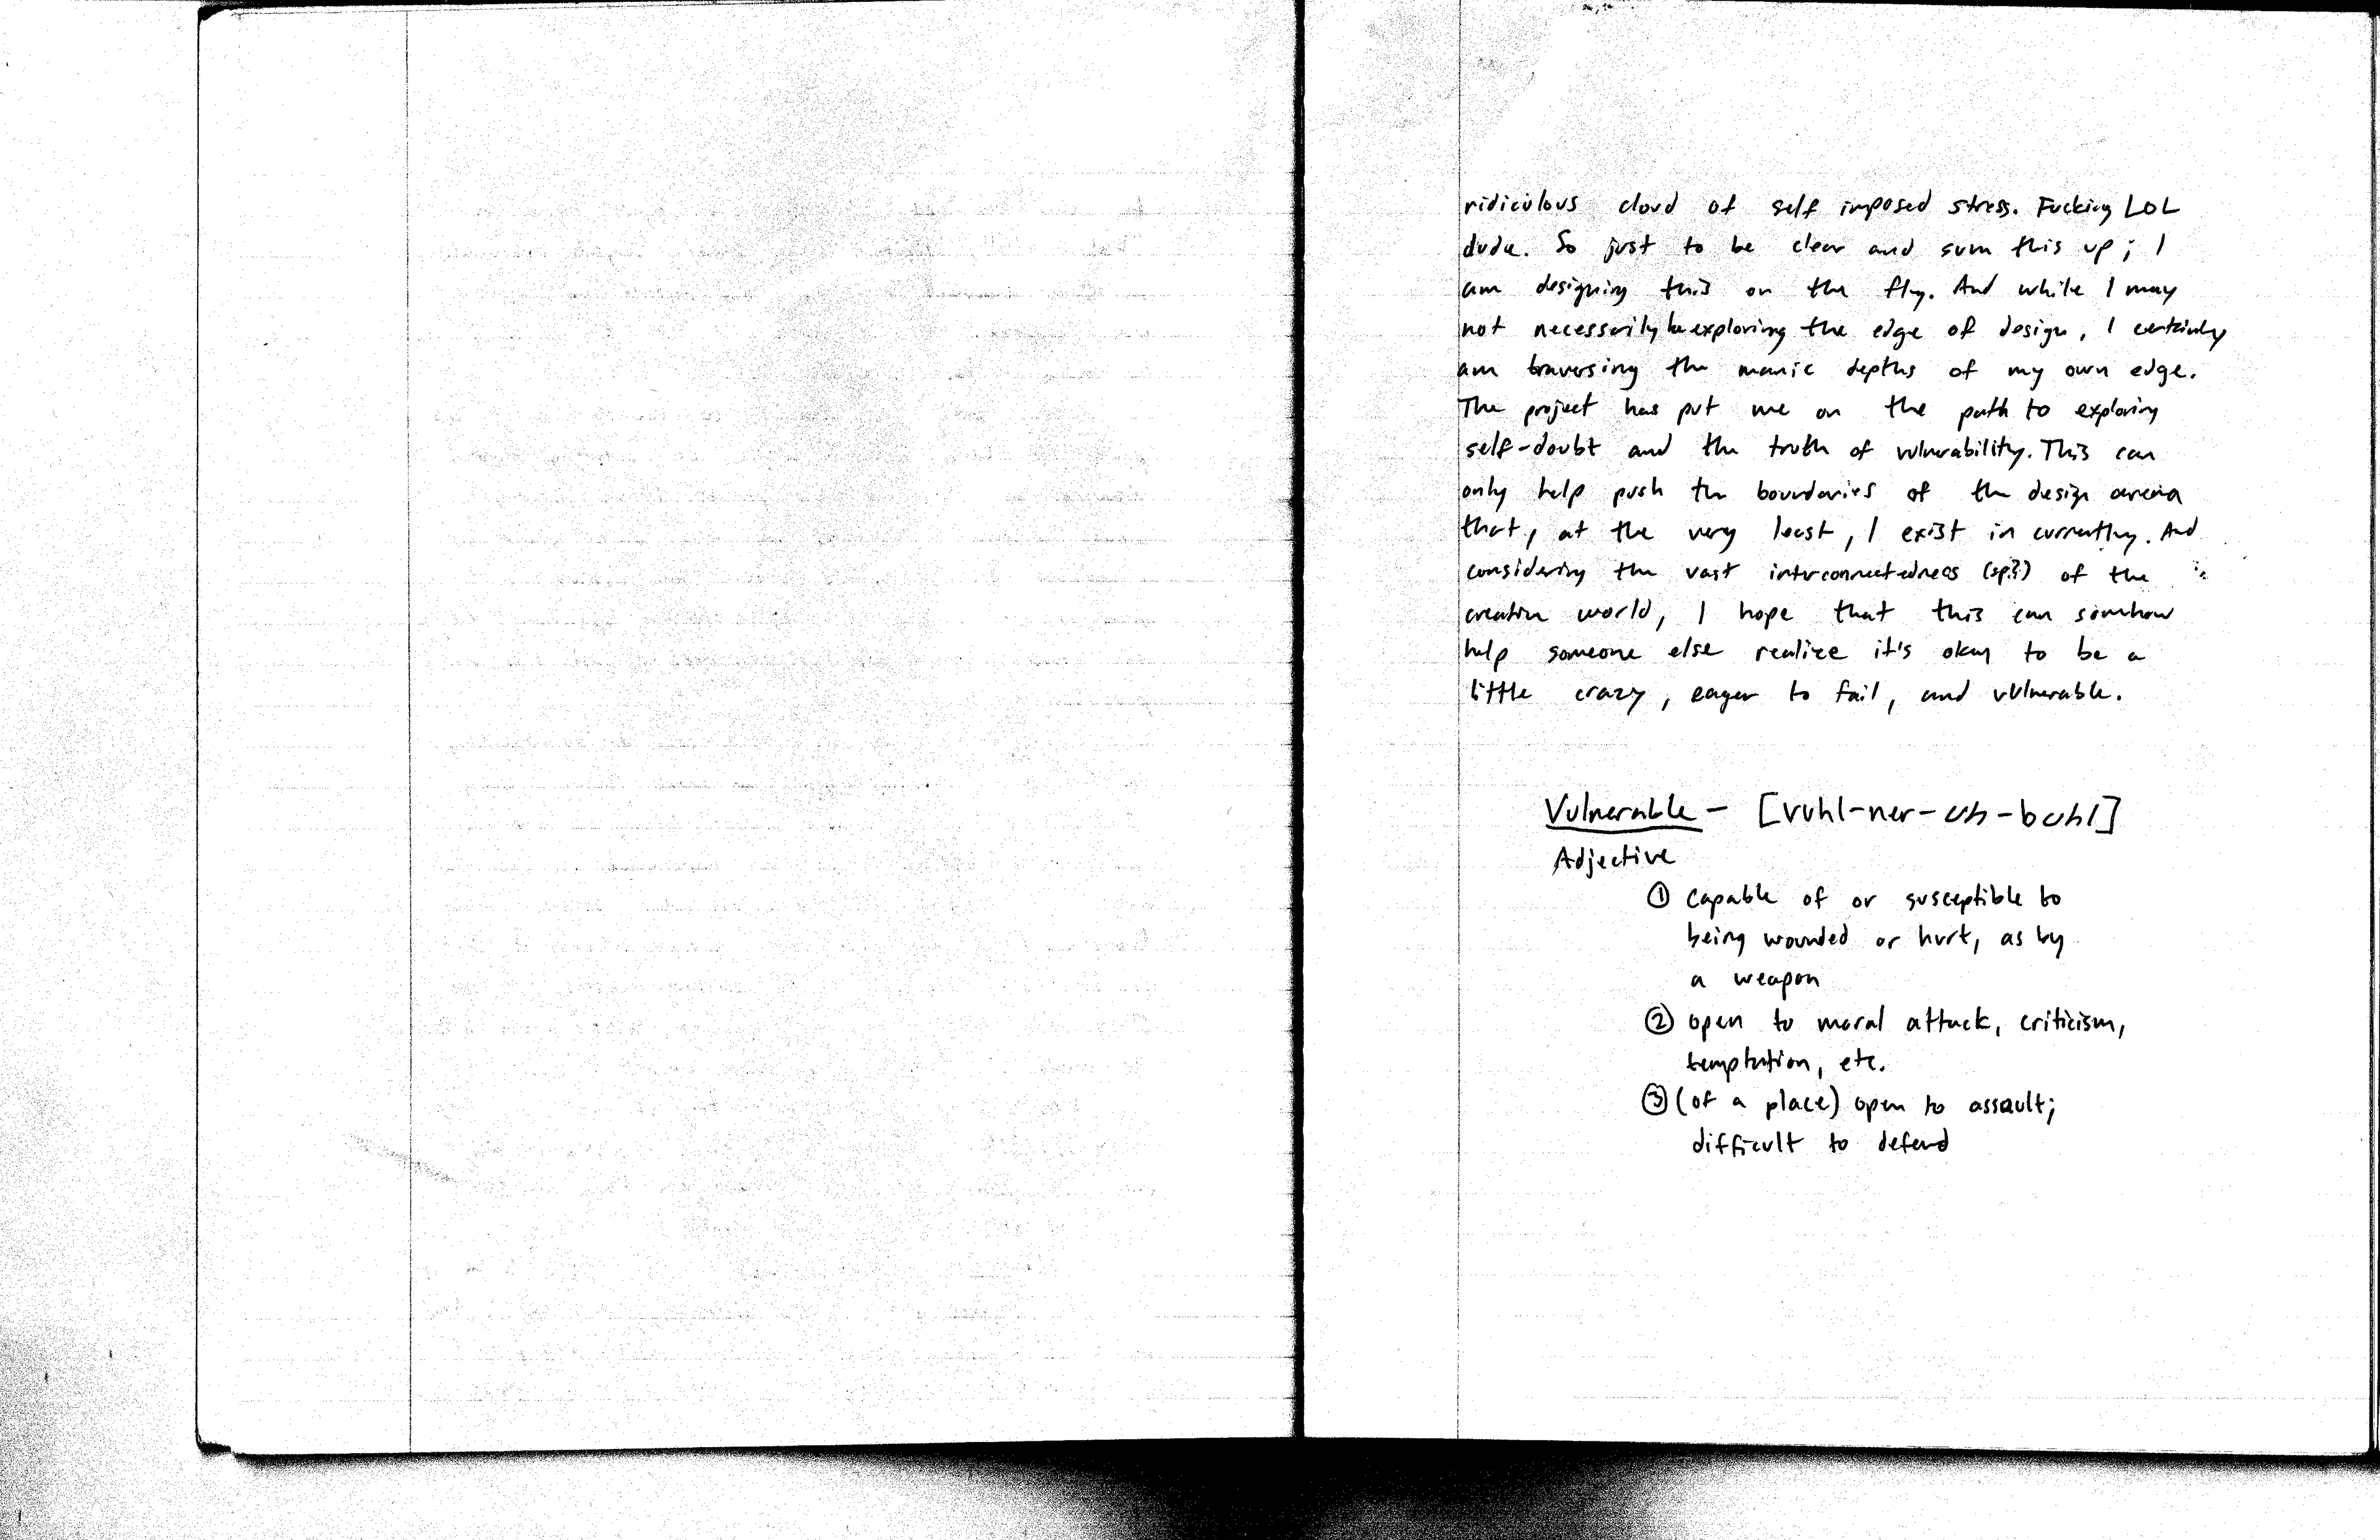 ridiculous cloud of self imposed stress. Fucking LOL
dude. So just to be clear and sum this up; I
am designing this on the fly. And while I may
not necessarily be exploring the edge of design, I certainly
am traversing the manic depths of my own edge.
The project has put me on the path to exploring
self-doubt and the truth of vulnerability. This can
only help push the boundaries of the design arena
that, at the very least, I exist in currently. And
considering the vast interconnectedness (sp?) of the
creative world, I hope that this can somehow
help someone else realize it's okay to be a
little crazy, eager to fail, and vulnerable.
Vulnerable - [vuhl-ner-uh-buhl]
Adjective
① capable of or susceptible to
being wounded or hurt, as by
a weapon
② open to moral attack, criticism,
temptation, etc.
③ (of a place) open to assault;
difficult to defend